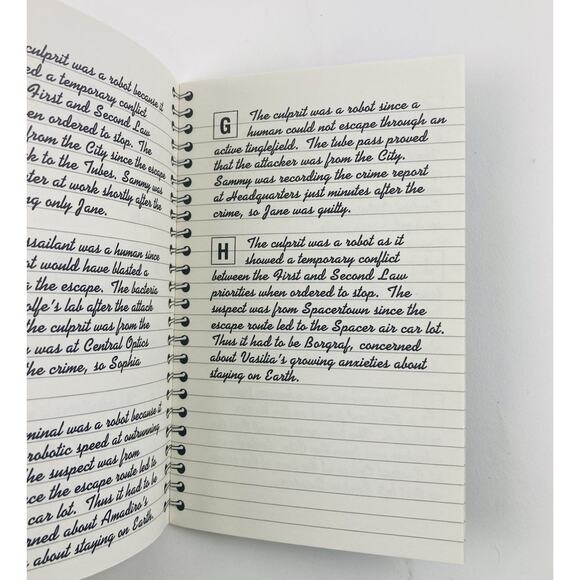 culprit was a robot because it
ed a temporary conflict
First and Second Law
en ordered to stop. The
from the City since the escape
k to the Tubes. Sammy was
ter at work shortly after the
ng only Jane.
ssailant was a human since
ot would have blasted a
ng the escape. The bacteria
olfe's lab after the attack
the culprit was from the
y was at Central Optics
the crime, so Sophia
minal was a robot because it
robotic speed at outrunning
The suspect was from
nce the escape route led to
car lot. Thus it had to be
rned about Amadiro's
about staying on Earth.
G The culprit was a robot since a
human could not escape through an
active tinglefield. The tube pass proved
that the attacker was from the City.
Sammy was recording the crime report
at Headquarters just minutes after the
crime, so Jane was guilty.
H The culprit was a robot as it
showed a temporary conflict
between the First and Second Law
priorities when ordered to stop. The
suspect was from Spacertown since the
escape route led to the Spacer air car lot.
Thus it had to be Borgraf, concerned
about Vasilia's growing anxieties about
staying on Earth.